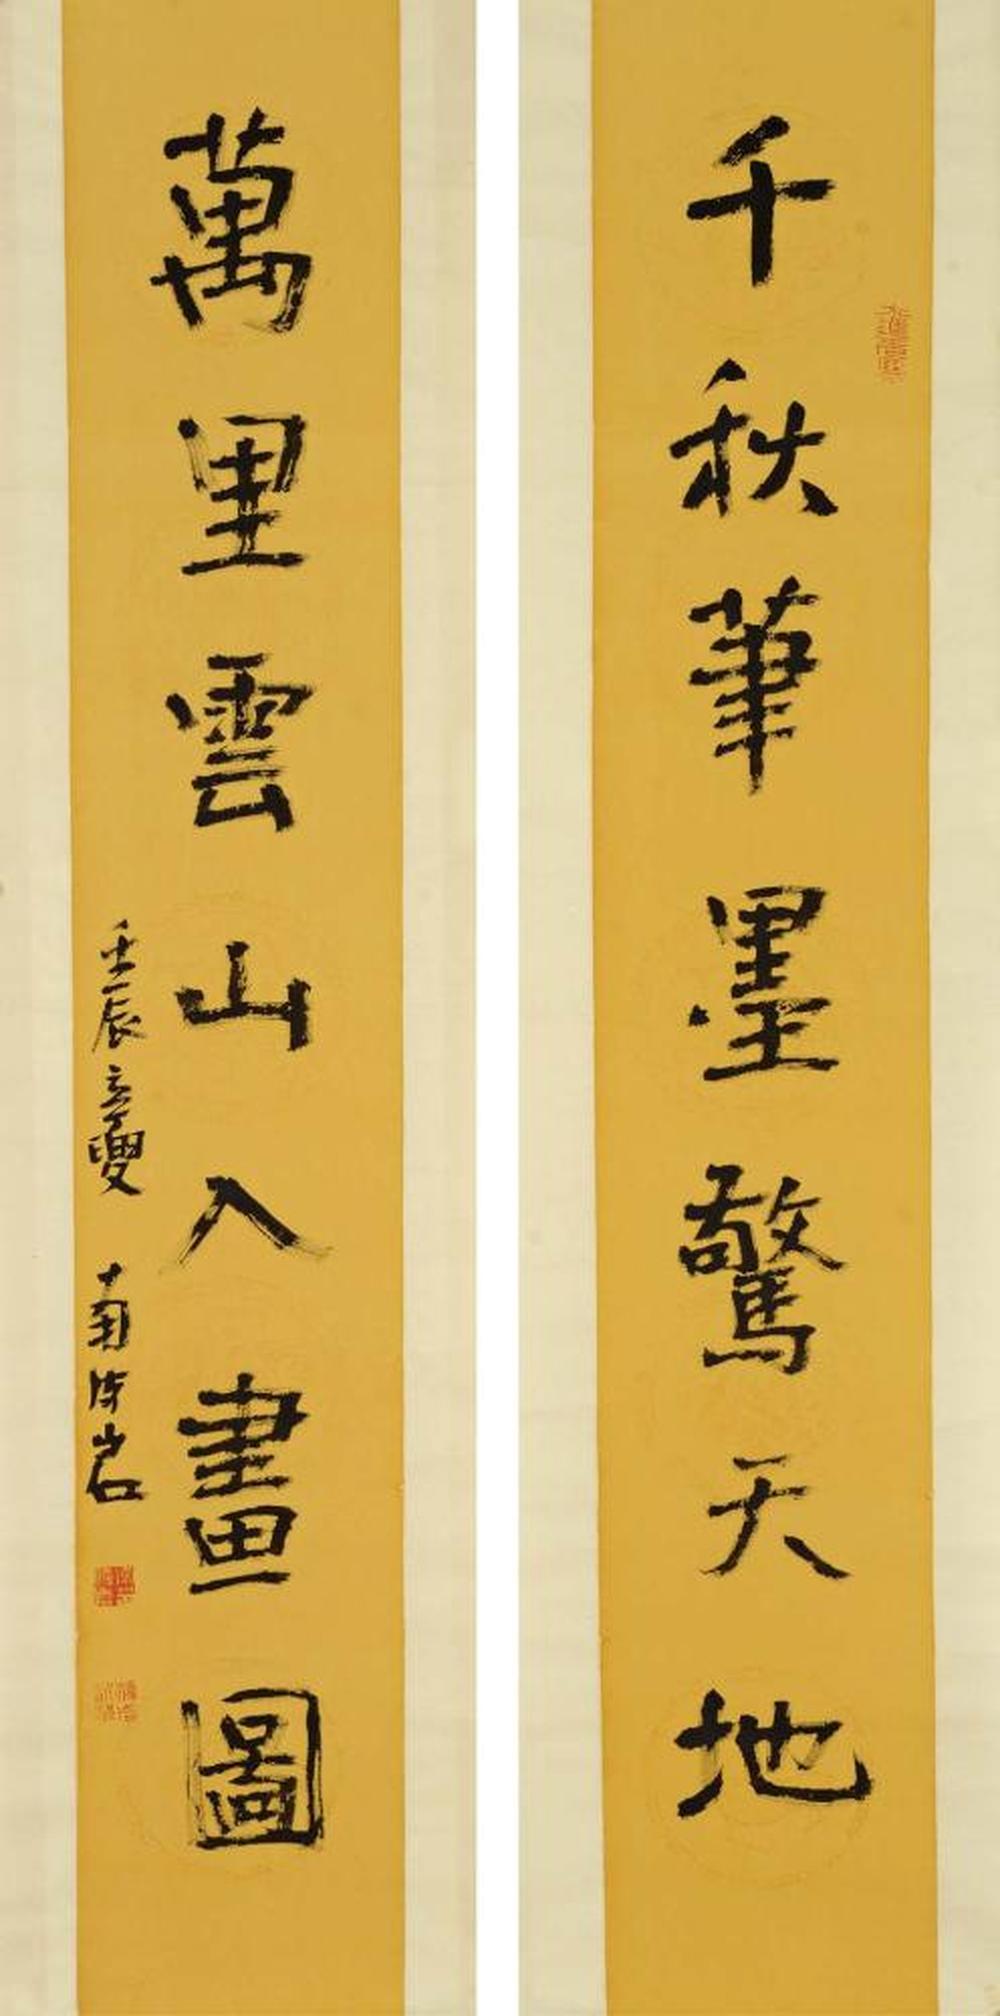 千秋筆墨驚天地
萬里雲山入畫圖
壬辰立夏 南海岩